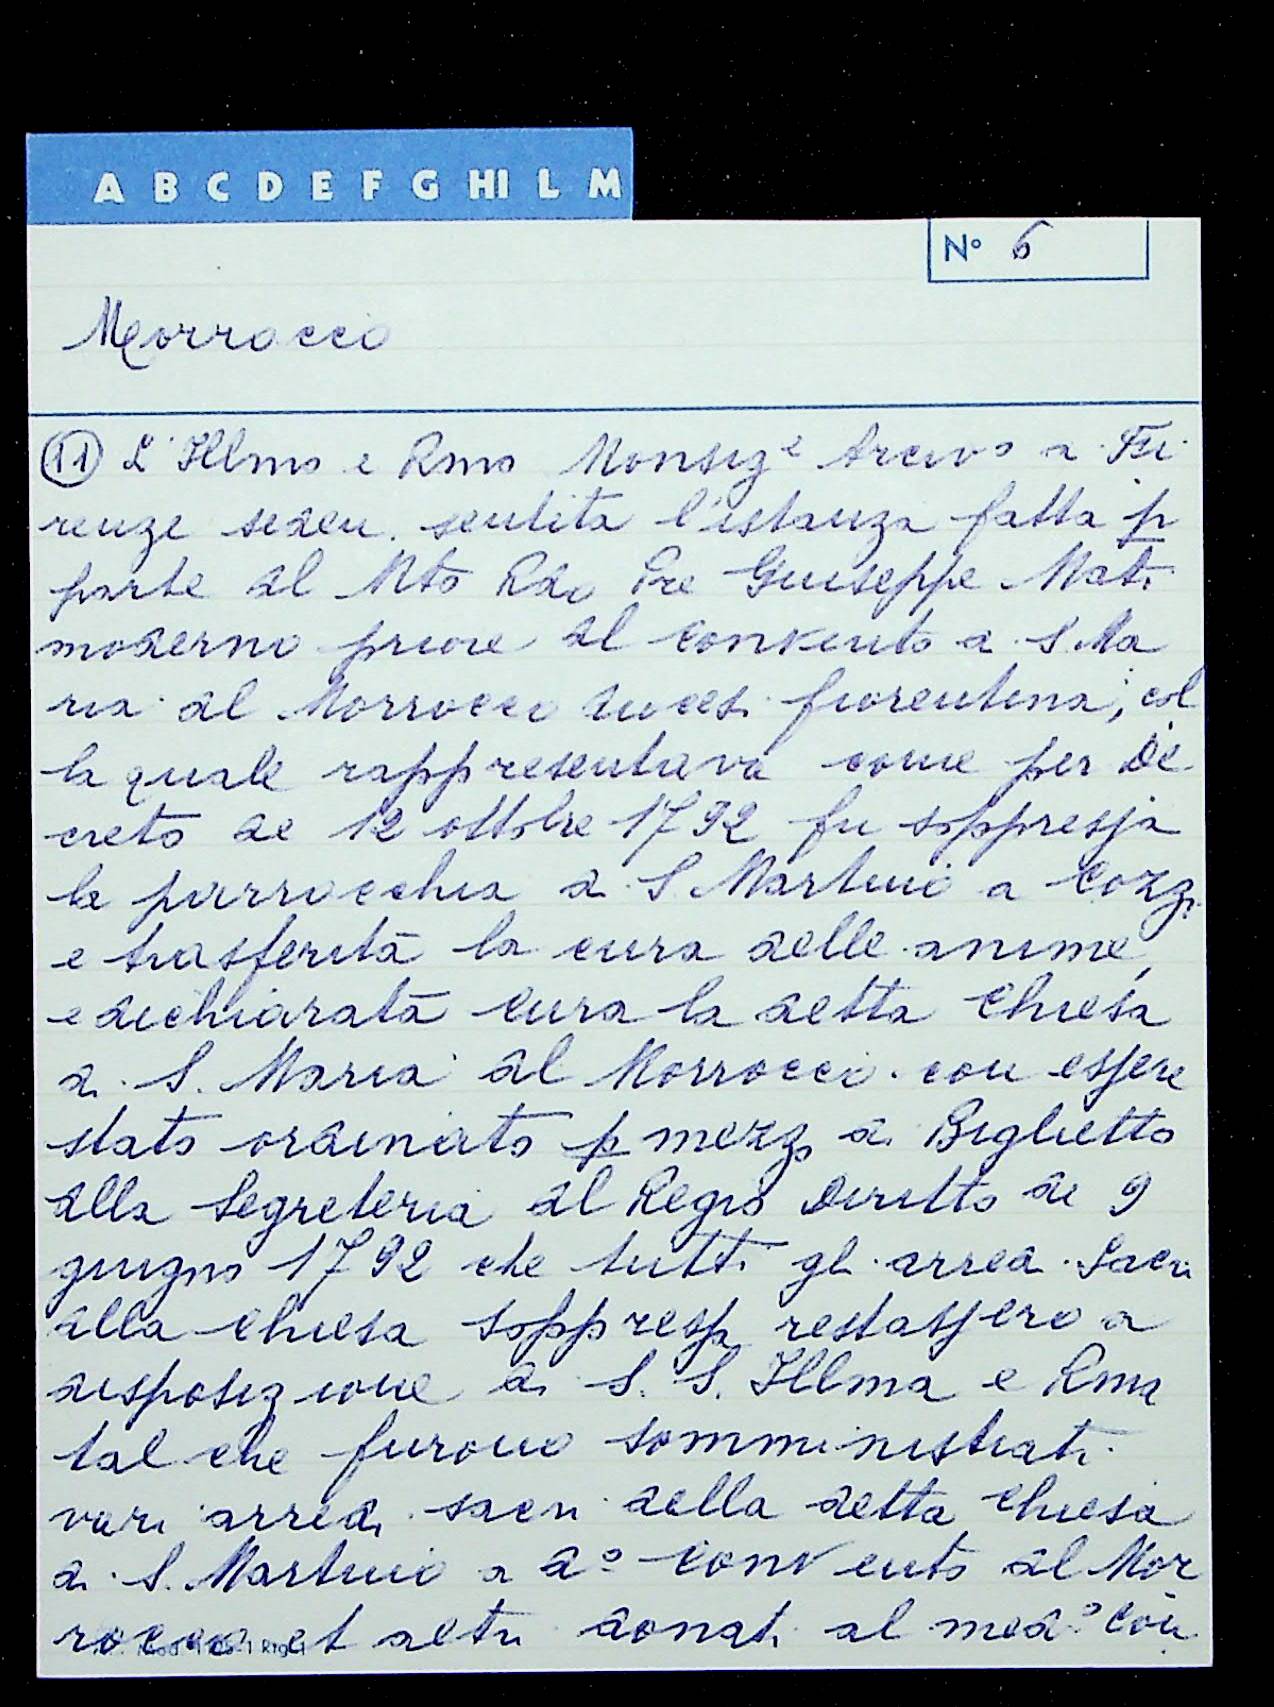 A B C D E F G HI L M
N° 6
Morrocco
(11) L'Illmo e Rmo Monsig.e Arciv.o di Fi
renze sedeu. sentita l'istanza fatta p
parte del Mto Rdo Pre Giuseppe Mati
moderno priore del convento di S. Ma
ria del Morrocco diocesi fiorentina, col
la quale rappresentava come per De
creto de 12 ottobre 1792 fu soppressa
la parrocchia di S. Martino a Cozzi
e trasferita la cura delle anime,
e dichiarata cura la detta Chiesa
di S. Maria del Morrocco con essere
stato ordinato p mezzo di Biglietto
della Segreteria del Regio Diritto de 9
giugno 1792 che tutti gli arredi Sacri
della Chiesa soppressa restassero a
disposizione di S. S. Illma e Rma
tal che furono somministrati
vari arredi sacri della detta Chiesa
di S. Martino a d.o convento del Mor
rocco et altri donati al med.o Con